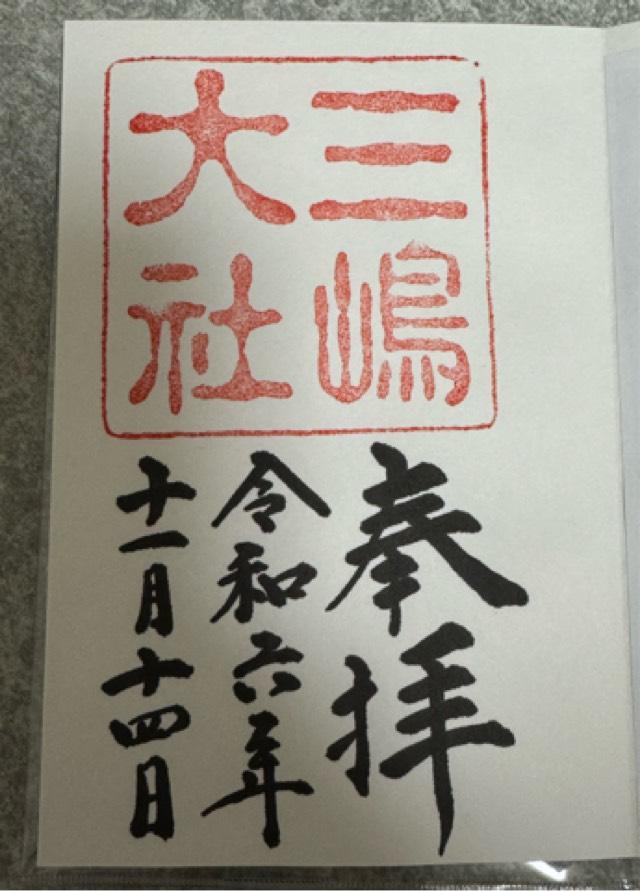 三嶋
大社
奉拝
令和六年
十一月十四日